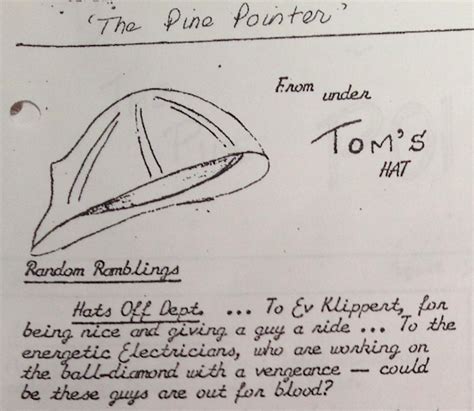 'The Pine Pointer'
From under
TOM'S
HAT
Random Ramblings
Hats Off Dept. ... To Ev Klippert, for
being nice and giving a guy a ride ... To the
energetic Electricians, who are working on
the ball-diamond with a vengeance — could
be these guys are out for blood?